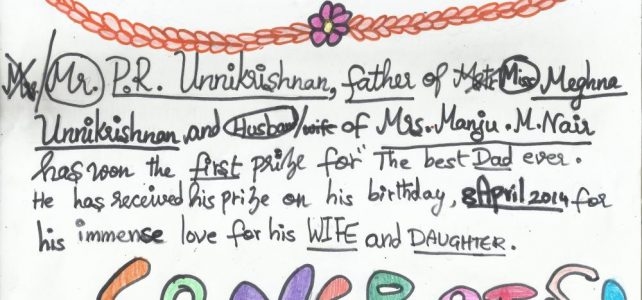 Mrs/Mr. P.R. Unnikrishnan, father of Mstr Miss Meghna
Unnikrishnan, and Husband/wife of Mrs. Manju. M. Nair
has won the first prize for "The best Dad ever.
He has received his prize on his birthday, 8 April 2014 for
his immense love for his WIFE and DAUGHTER.
CONGRATS!